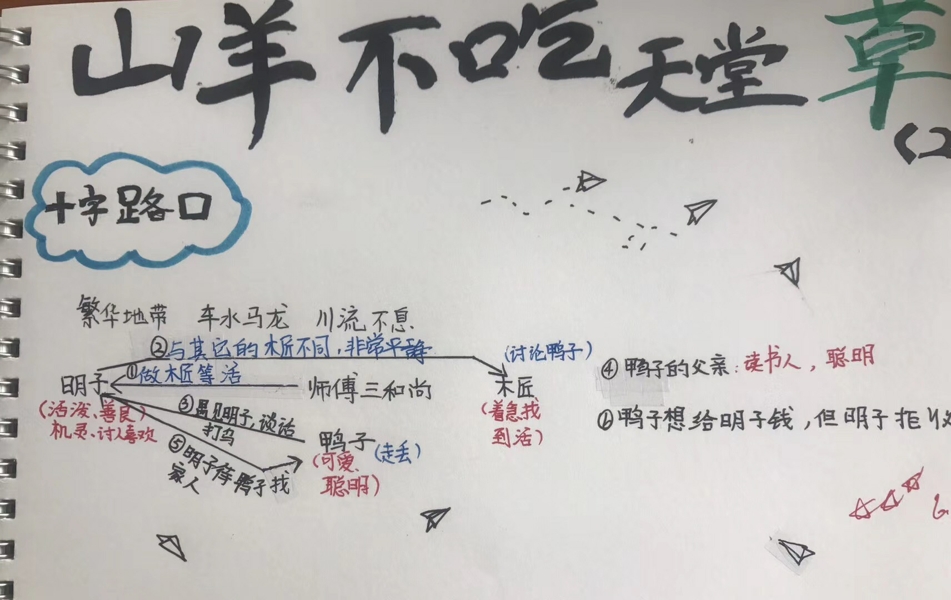 山羊不吃天堂草
(2
十字路口
繁华地带 车水马龙 川流不息
②与其它的木匠不同，非常平静
(讨论鸭子)
①做木匠等活
明子
师傅三和尚
木匠
④鸭子的父亲：读书人，聪明
(活泼、善良)
机灵、讨人喜欢
③遇见明子，谈话
打鸟
(着急找
到活)
⑥鸭子想给明子钱，但明子拒收
鸭子 (走丢)
(可爱、
聪明)
⑤明子伴鸭子找
家人